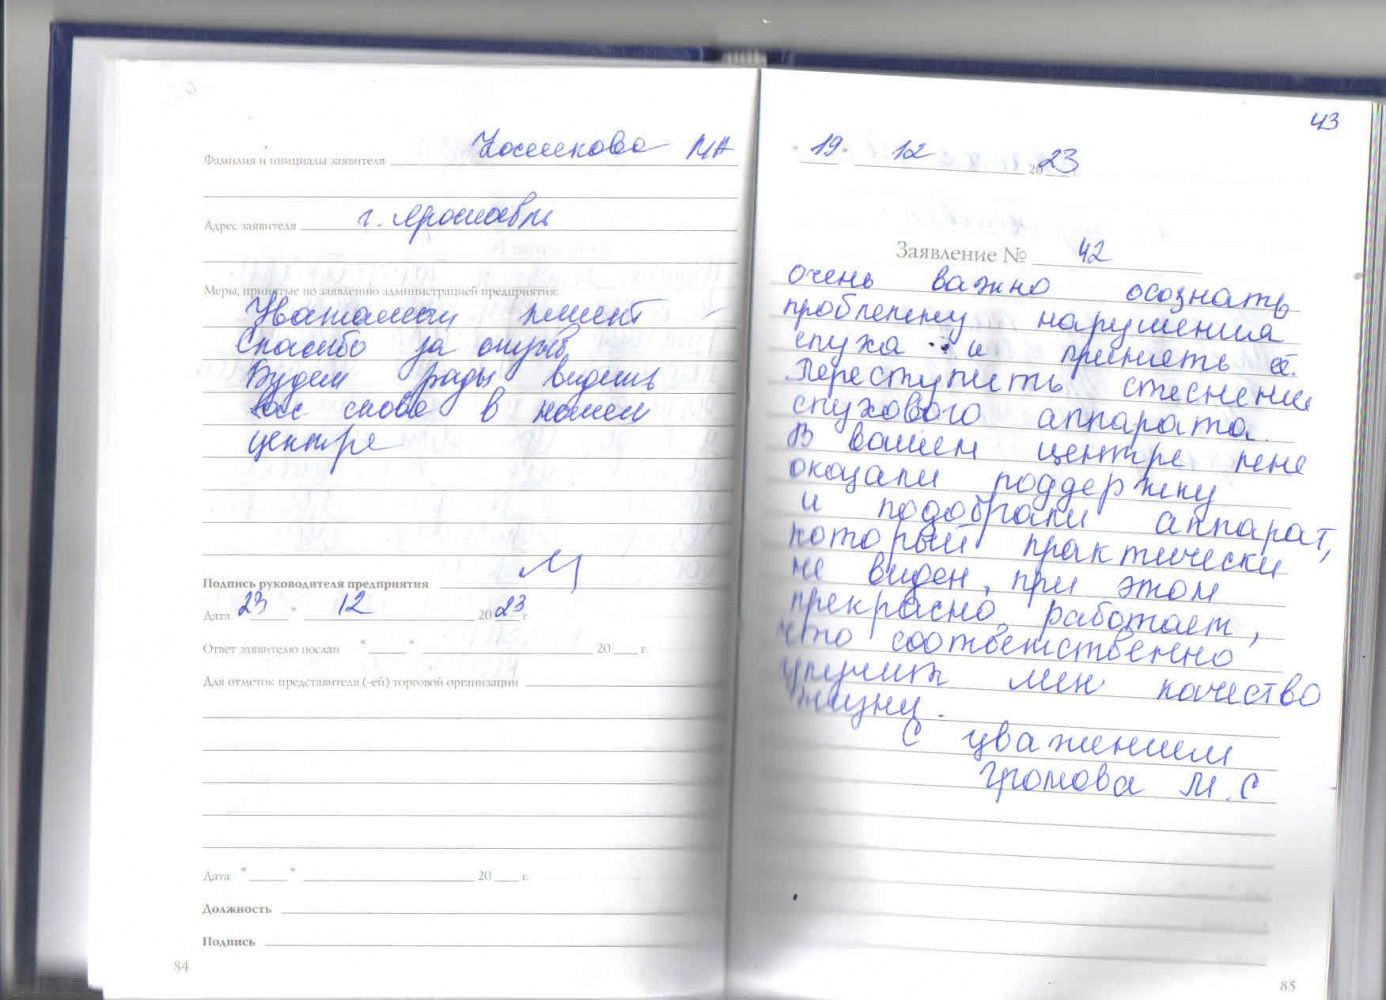 Фамилия и инициалы заявителя МА
Адрес заявителя г. Ярославль
Меры, принятые по заявлению администрацией предприятия:
Уважаемый клиент
Спасибо за отзыв,
Будем рады видеть
вас снова в нашем
центре
Подпись руководителя предприятия
Дата 23 " 12 2023 г.
Ответ заявителю послан " " 20 г.
Для отметок представителя (-ей) торговой организации
Дата " " 20 г.
Должность
Подпись
84
43
" 19 " 12 2023
Заявление № 42
очень важно осознать
проблему нарушения
слуха и принять её.
Переступить стеснение
слухового аппарата.
В вашем центре мне
оказали поддержку
и подобрали аппарат,
который практически
не виден, при этом
прекрасно работает,
что соответственно
улучшить мен качество
жизни.
С уважением
Громова М.С
85